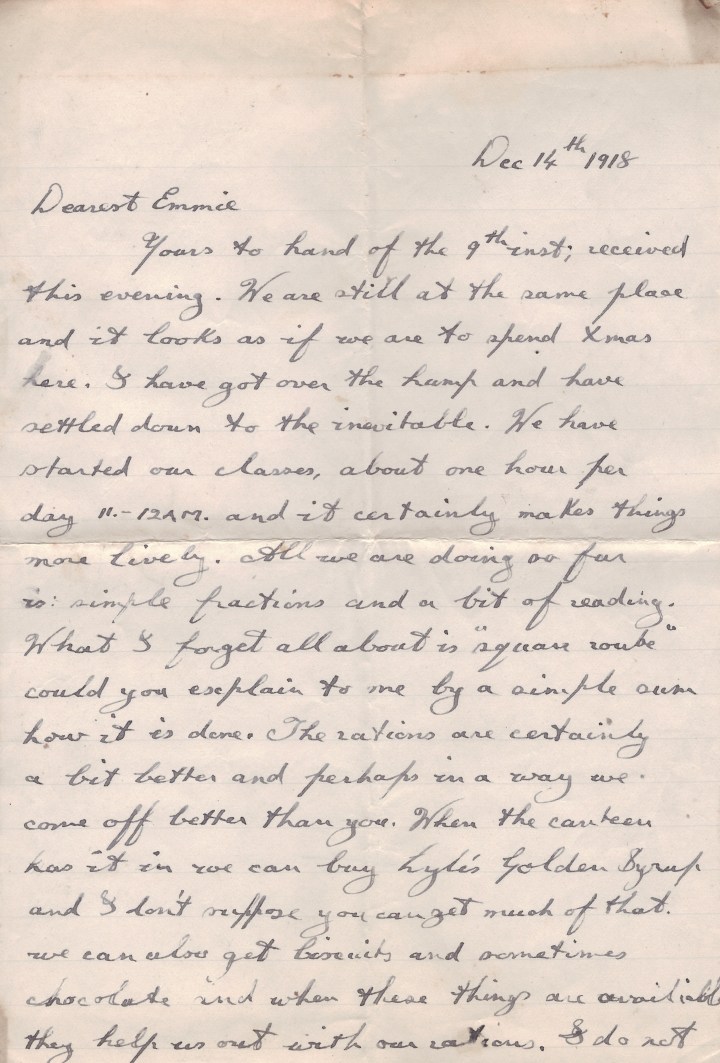 Dec 14th 1918
Dearest Emmie
Yours to hand of the 9th inst; received
this evening. We are still at the same place
and it looks as if we are to spend Xmas
here. I have got over the hump and have
settled down to the inevitable. We have
started our classes, about one hour per
day 11.-12AM. and it certainly makes things
more lively. All we are doing so far
is: simple fractions and a bit of reading.
What I forget all about is "square route"
could you explain to me by a simple sum
how it is done. The rations are certainly
a bit better and perhaps in a way we
come off better than you. When the canteen
has it in we can buy Lyle's Golden Syrup
and I don't suppose you can get much of that.
we can also get biscuits and sometimes
chocolate and when these things are available
they help us out with our rations. I do not